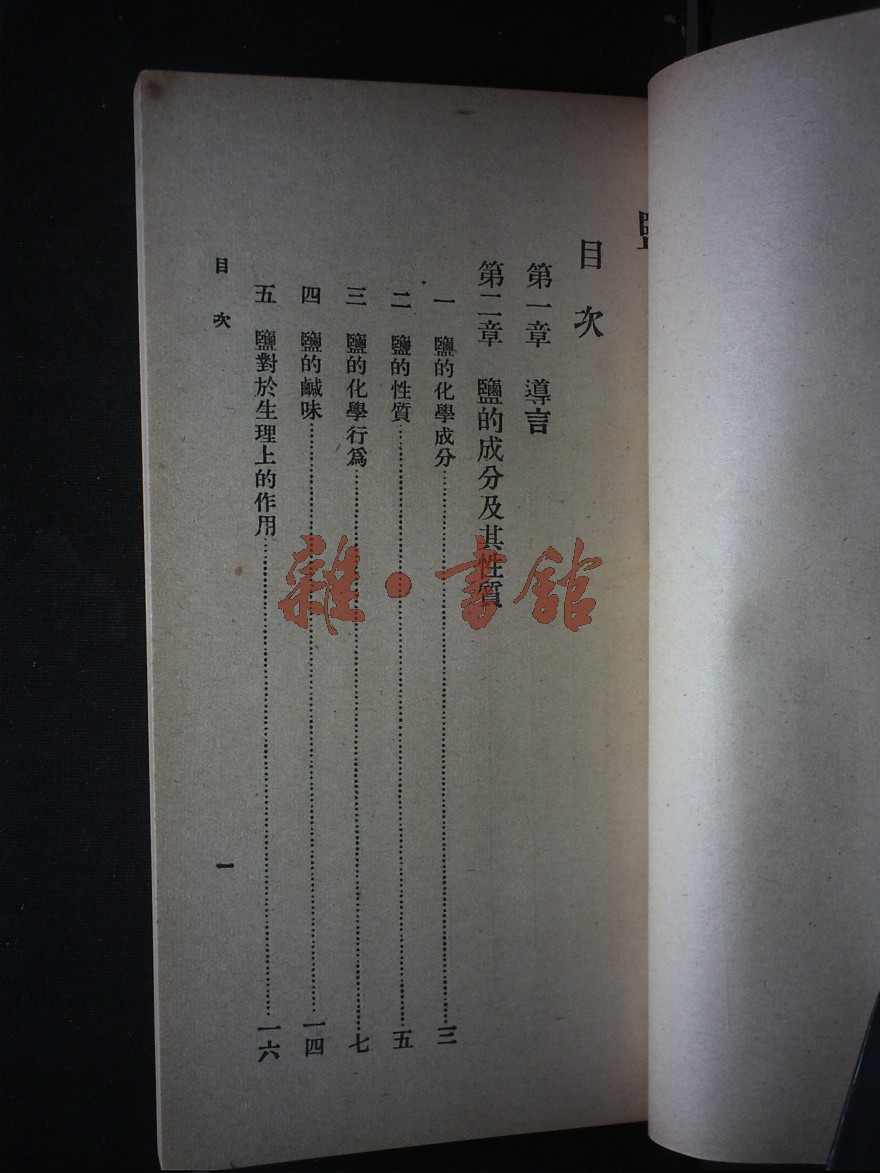 目次
第一章　導言
第二章　鹽的成分及其性質
一　鹽的化學成分……三
二　鹽的性質……五
三　鹽的化學行爲……七
四　鹽的鹹味……一四
五　鹽對於生理上的作用……一六
目次　一
雜·書館